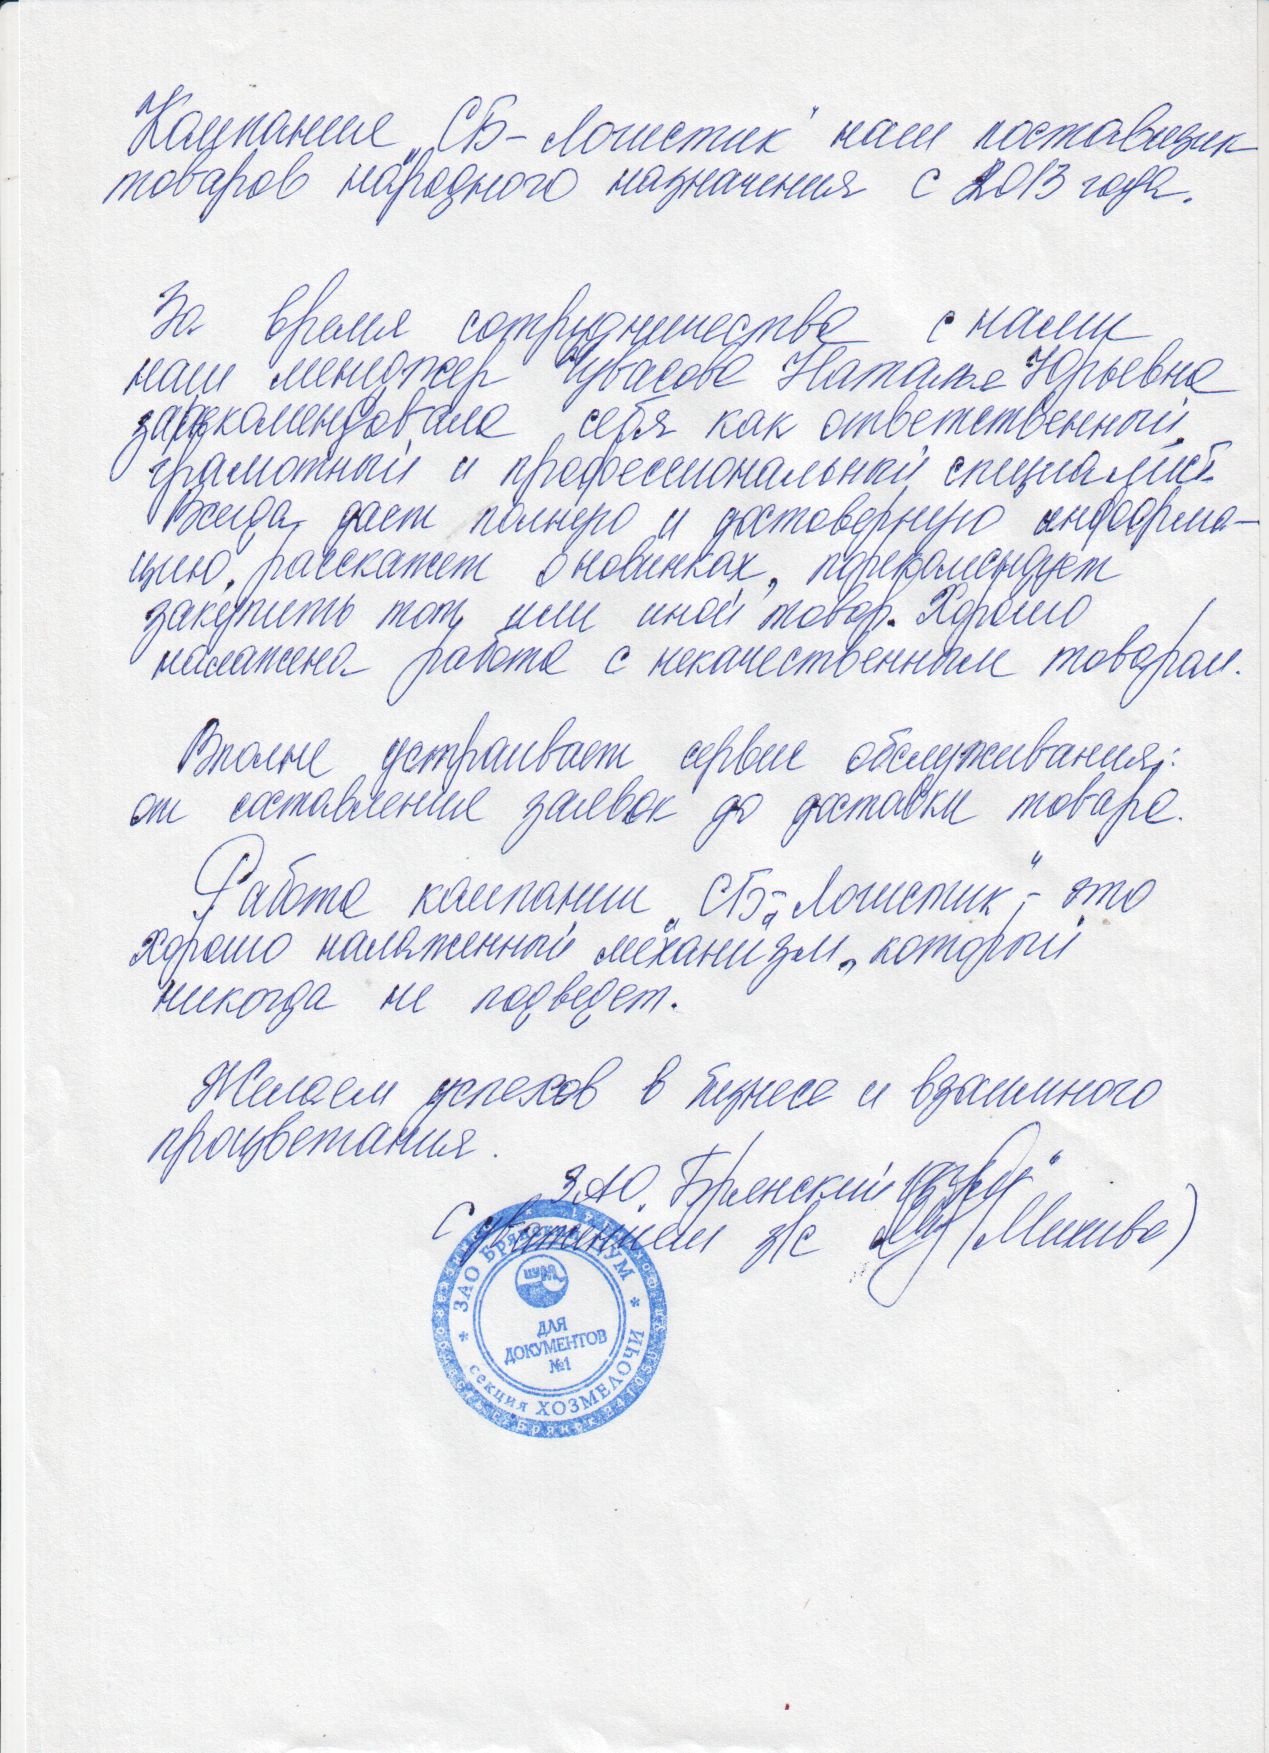 Компания „СБ-Логистик" наш поставщик
товаров народного назначения с 2013 года.
За время сотрудничества с нами
наш менеджер Чувасова Наталья Юрьевна
зарекомендовала себя как ответственный,
грамотный и профессиональный специалист.
Всегда дает полную и достоверную информа-
цию, расскажет о новинках, порекомендует
закупить тот или иной товар. Хорошо
налажена работа с некачественным товаром.
Вполне устраивает сервис обслуживания:
от составления заявок до доставки товара.
Работа компании „СБ-Логистик" - это
хорошо налаженный механизм, который
никогда не подведет.
Желаем успехов в бизнесе и взаимного
процветания.
ЗАО „Брянский ЦУМ"
С уважением з/с
ЗАО Брянский ЦУМ
ЦУМ
ДЛЯ
ДОКУМЕНТОВ
№1
секция ХОЗМЕЛОЧИ